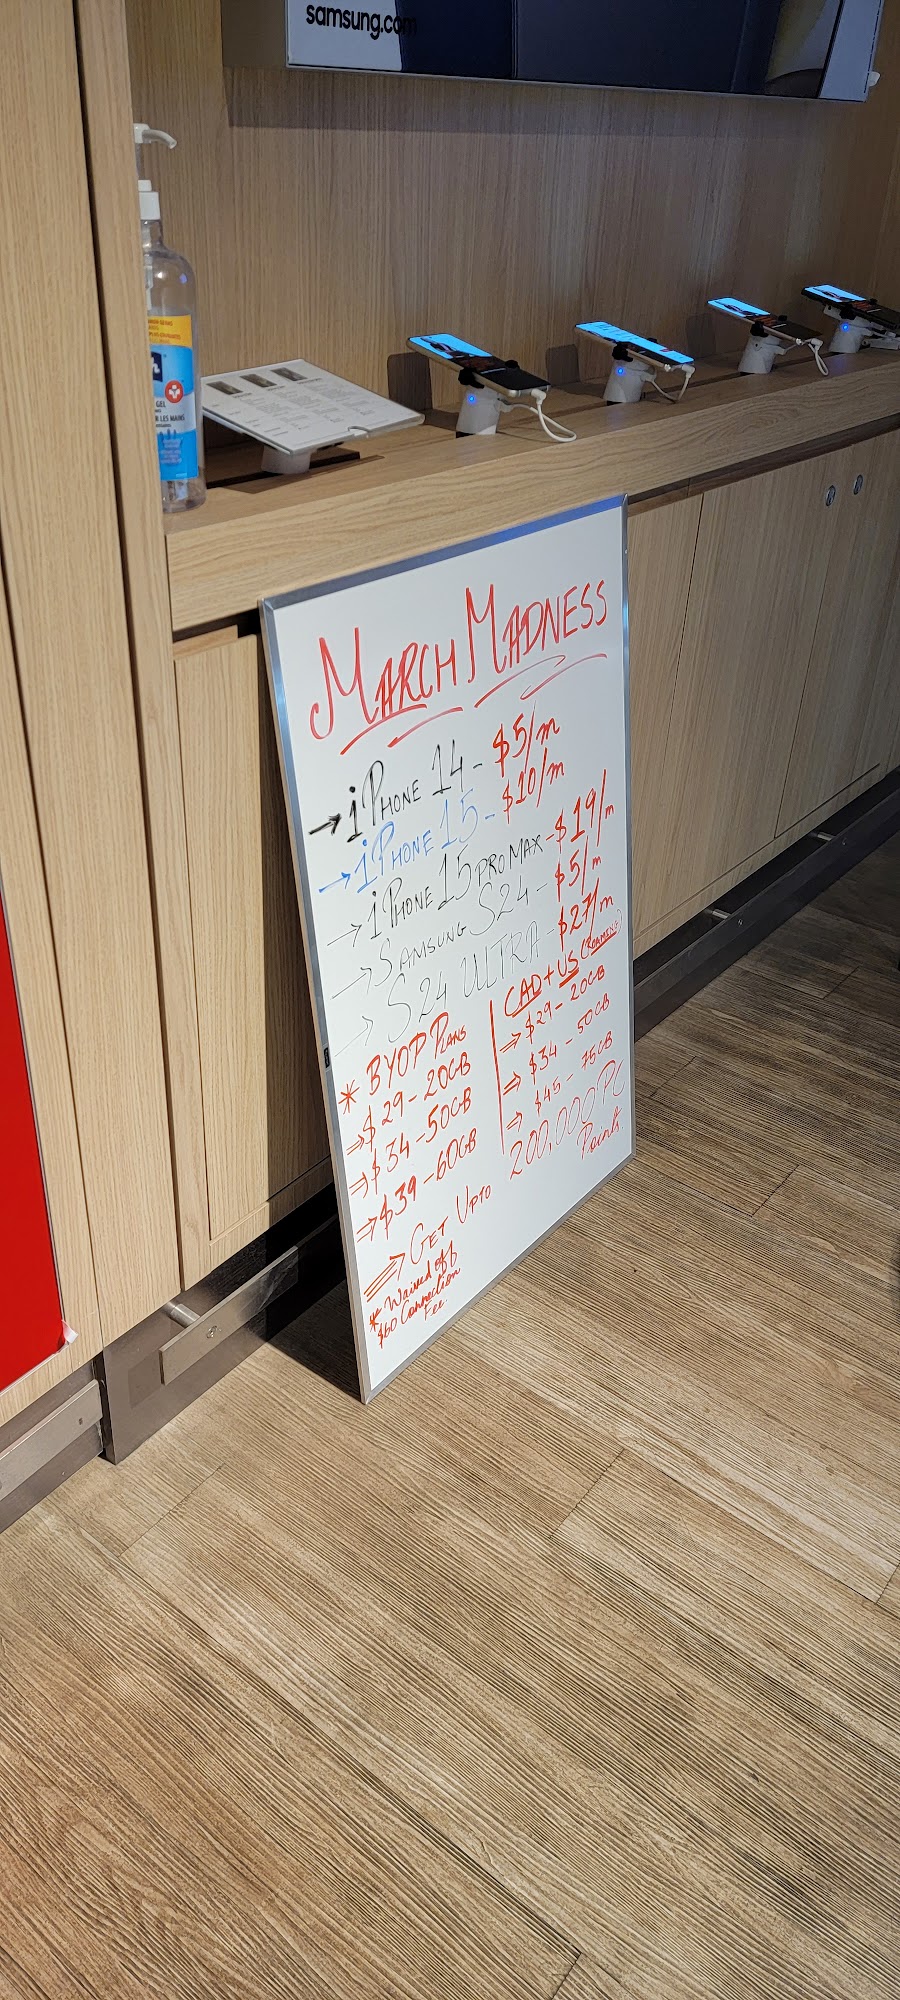 samsung.com
GEL
R LES MAINS
MARCH MADNESS
→ iPHONE 14 - $5/m
→ iPHONE 15 - $10/m
→ iPHONE 15 PRO MAX - $19/m
→ SAMSUNG S24 - $5/m
→ S24 ULTRA - $27/m
* BYOP PLANS
⇒ $29 - 20GB
⇒ $34 - 50GB
⇒ $39 - 60GB
CAD + US (ROAMING)
⇒ $29 - 20GB
⇒ $34 - 50GB
⇒ $45 - 75GB
⇒ GET UPTO 200,000 PC Points.
* Waived off
$60 Connection
Fee.